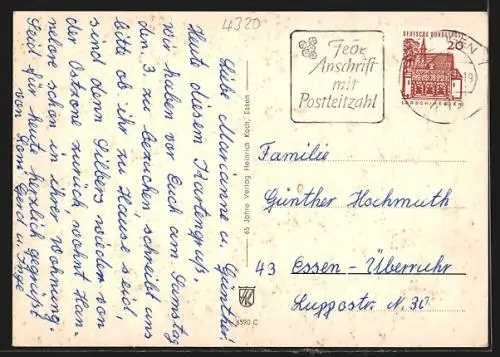 4320
Liebe Marianne u. Günther!
Heute diesem Kartengruß,
wir haben vor Euch am Samstag
den 3. zu besuchen, schreibt uns
bitte ob ihr zu Hause seid,
sind denn Silbers wieder von
der Ostzone zurück wohnt Han-
nelore schon in ihrer Wohnung.
Seid für heute herzlich gegrüßt
von Horst, Gerd u. Inge
65 Jahre Verlag Heinrich Koch, Essen
6590 C
Jede
Anschrift
mit
Postleitzahl
DEUTSCHE BUNDESPOST
20
LORSCH/HESSEN
ESSEN 1
19
Familie
Günther Hochmuth
43 Essen-Überruhr
Luppostr. N. 30